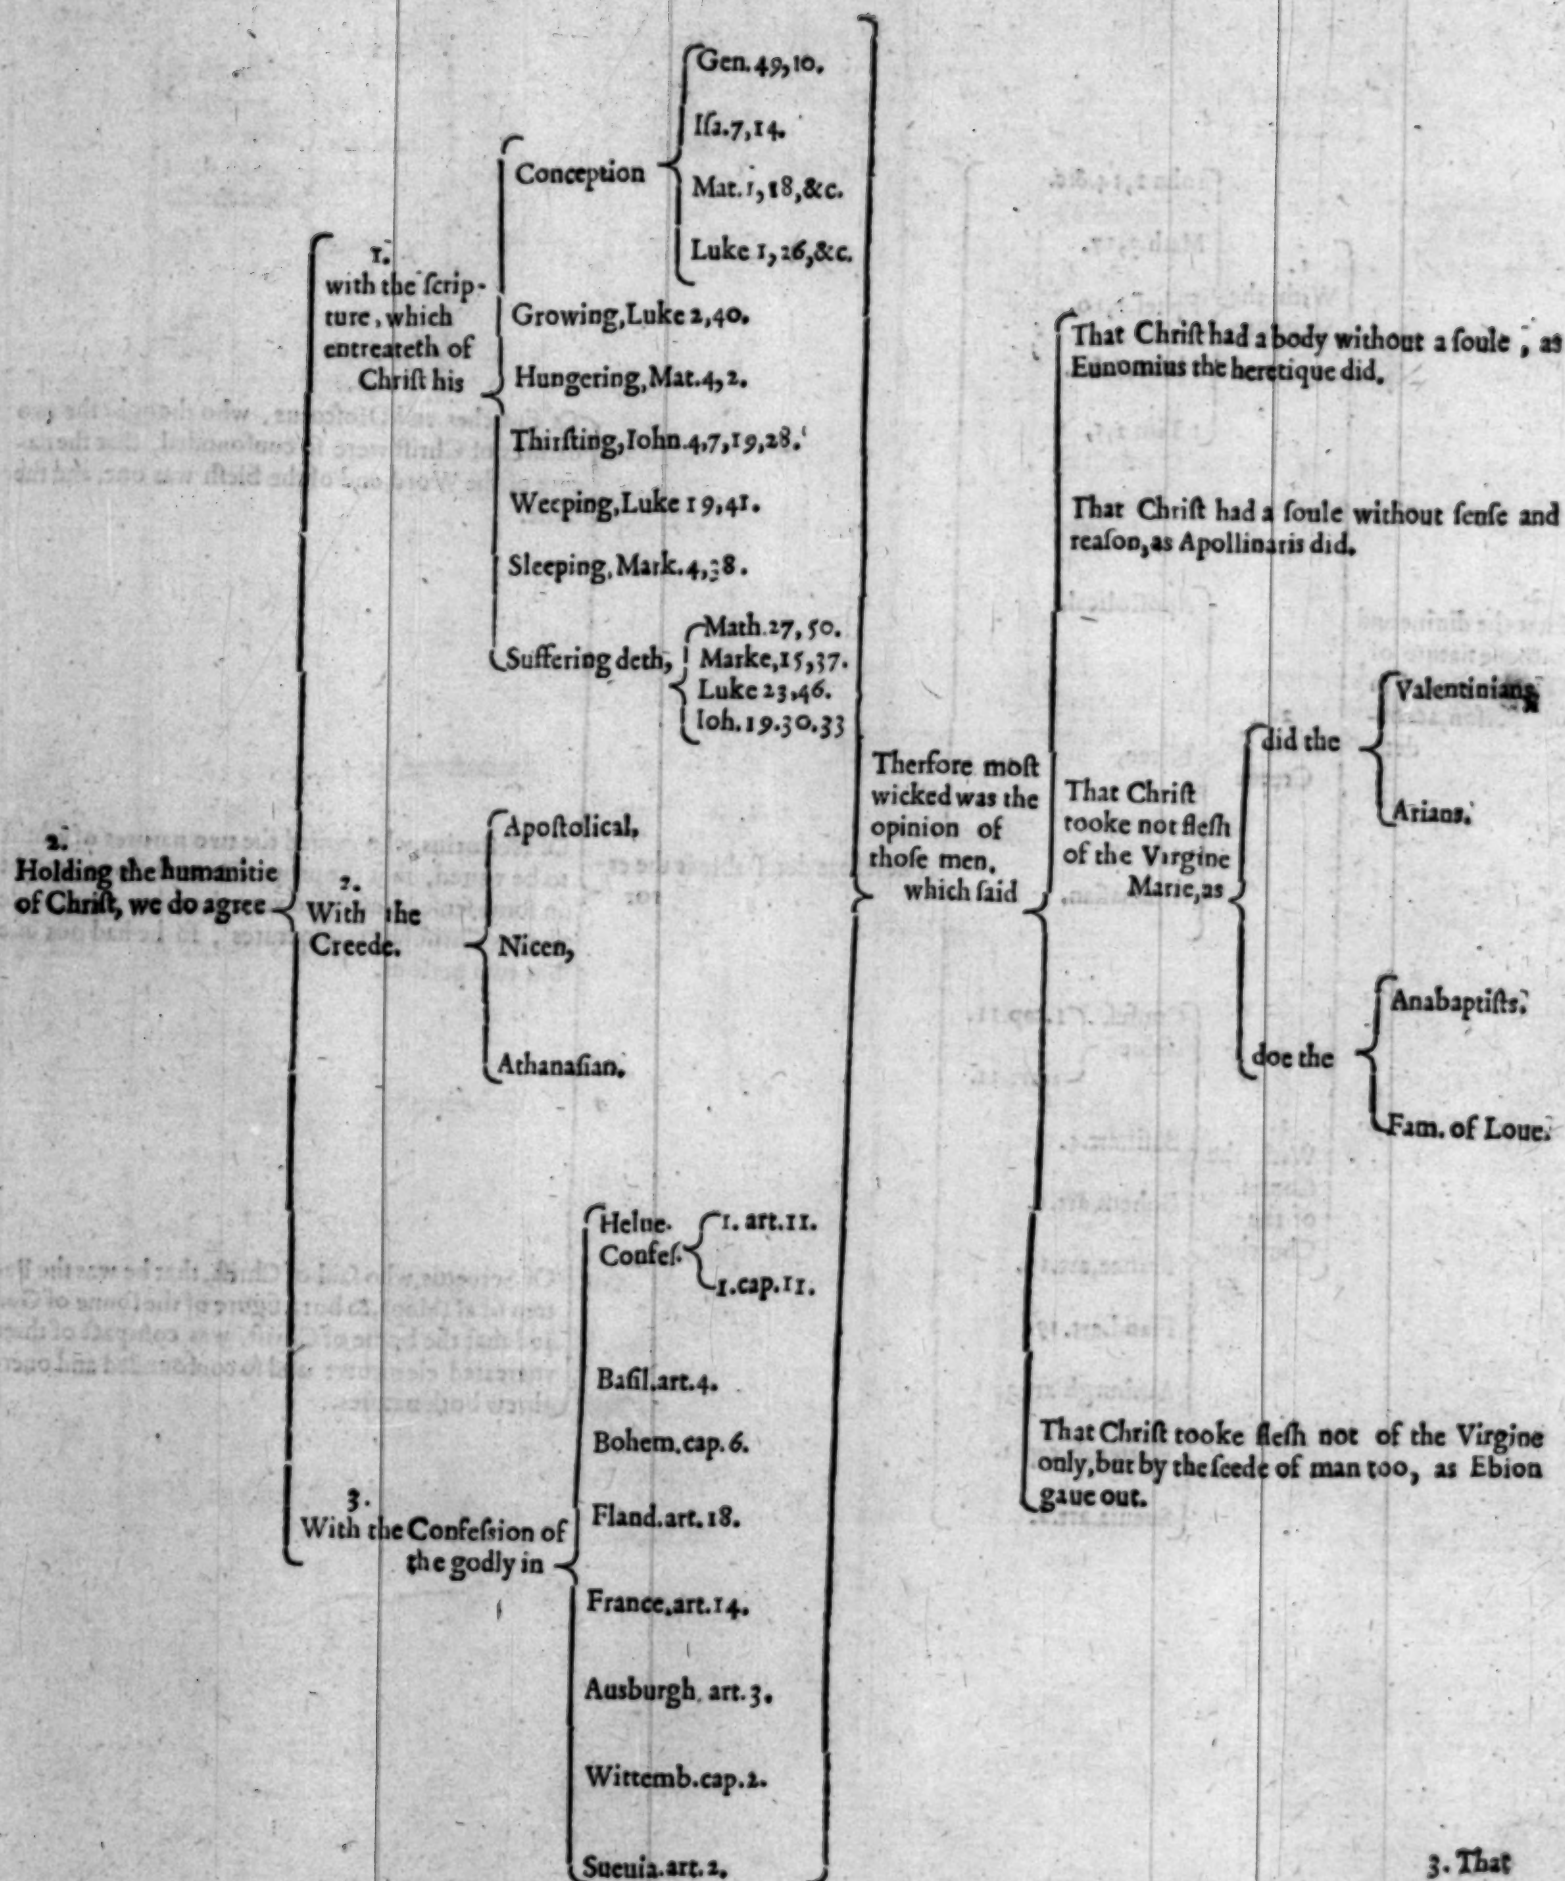 2.
Holding the humanitie
of Chriſt, we do agree
1.
with the ſcrip-
ture, which
entreateth of
Chriſt his
Conception
Gen. 49,10.
Iſa.7,14.
Mat.1,18,&c.
Luke 1,26,&c.
Growing,Luke 2,40.
Hungering,Mat.4,2.
Thirſting,Iohn.4,7,19,28.
Weeping,Luke 19,41.
Sleeping,Mark.4,38.
Suffering deth,
Math.27,50.
Marke,15,37.
Luke 23,46.
Ioh.19.30.33
2.
With the
Creede.
Apoſtolical,
Nicen,
Athanaſian.
3.
With the Confeſsion of
the godly in
Helue.
Confeſ.
1. art.11.
1.cap.11.
Baſil.art.4.
Bohem.cap.6.
Fland.art.18.
France.art.14.
Ausburgh. art.3.
Wittemb.cap.2.
Sueuia.art.2.
Therfore moſt
wicked was the
opinion of
thoſe men,
which ſaid
That Chriſt had a body without a ſoule, as
Eunomius the heretique did.
That Chriſt had a ſoule without ſenſe and
reaſon,as Apollinaris did.
That Chriſt
tooke not fleſh
of the Virgine
Marie,as
did the
Valentinians,
Arians.
doe the
Anabaptiſts.
Fam. of Loue.
That Chriſt tooke fleſh not of the Virgine
only,but by the ſeede of man too, as Ebion
gaue out.
3. That